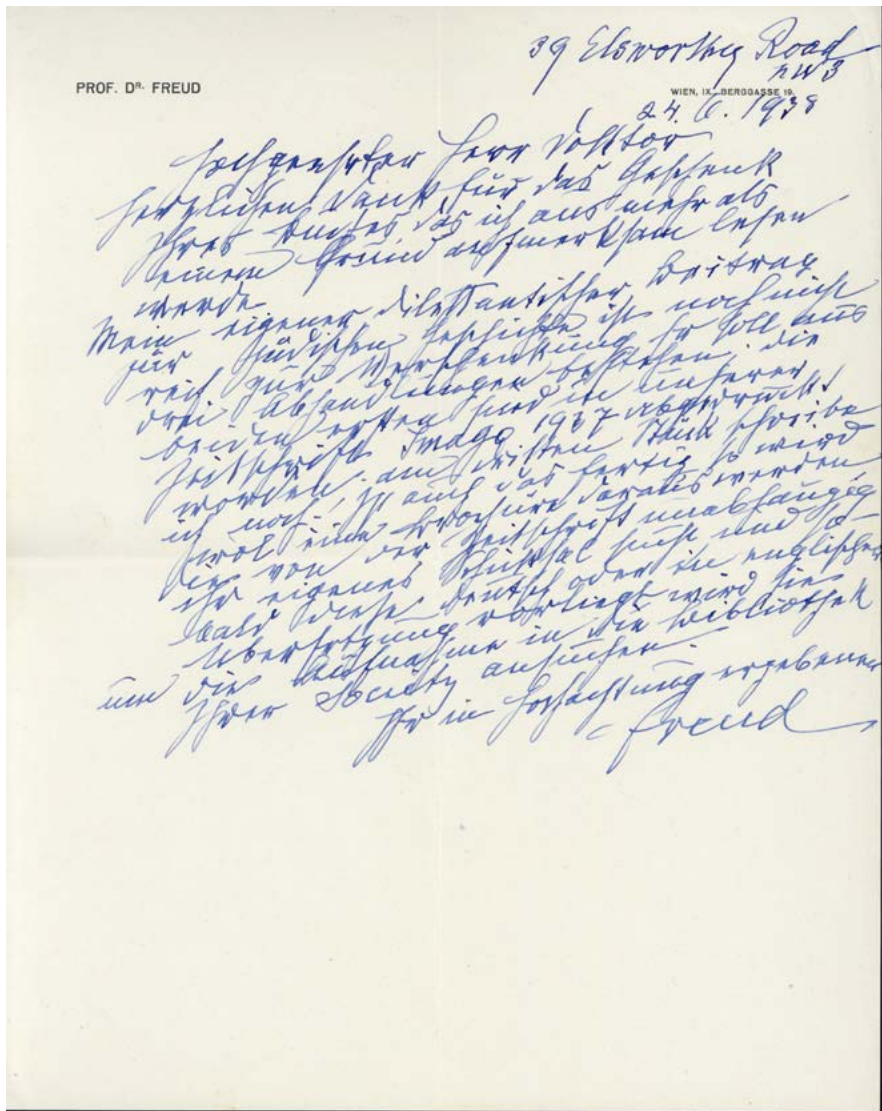 39 Elsworthy Road
NW3
PROF. DR. FREUD
WIEN, IX., BERGGASSE 19.
24. 6. 1938
Hochgeehrter Herr Doktor
Herzlichen Dank für das Geschenk
Ihres Buches das ich aus mehr als
einem Grund aufmerksam lesen
werde
Mein eigener dilettantischer Beitrag
zur jüdischen Geschichte ist noch nicht
reif zur Verschenkung. Er soll aus
drei Abhandlungen bestehen, die
beiden ersten sind in unserer
Zeitschrift Imago 1937 abgedruckt
worden, am dritten Stück schreibe
ich noch. Ist auch das fertig so wird
wol eine Broschüre daraus werden
die von der Zeitschrift unabhängig
ihr eigenes Schicksal sucht und so-
bald diese deutsch oder in englischer
Übersetzung vorliegt wird sie
um die Aufnahme in die Bibliothek
Ihrer Society ansuchen.
Ihr in Hochachtung ergebener
Freud